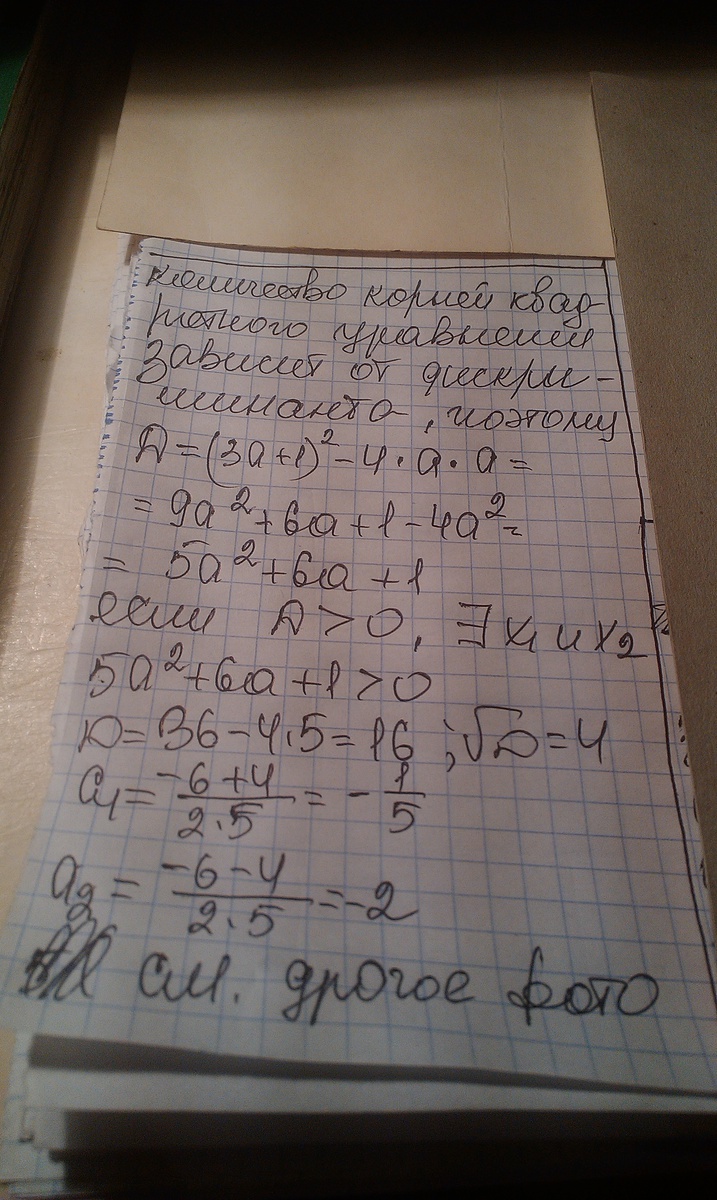 количество корней квад-
ратного уравнения
зависит от дискри-
минанта, поэтому
D=(3a+1)²-4·a·a=
=9a²+6a+1-4a²=
= 5a²+6a+1
если D>0, ∃ x₁ и x₂
5a²+6a+1>0
D=36-4·5=16 ; √D=4
a₁= (-6+4)/(2·5) = -1/5
a₂= (-6-4)/(2·5) =-2
см. другое фото